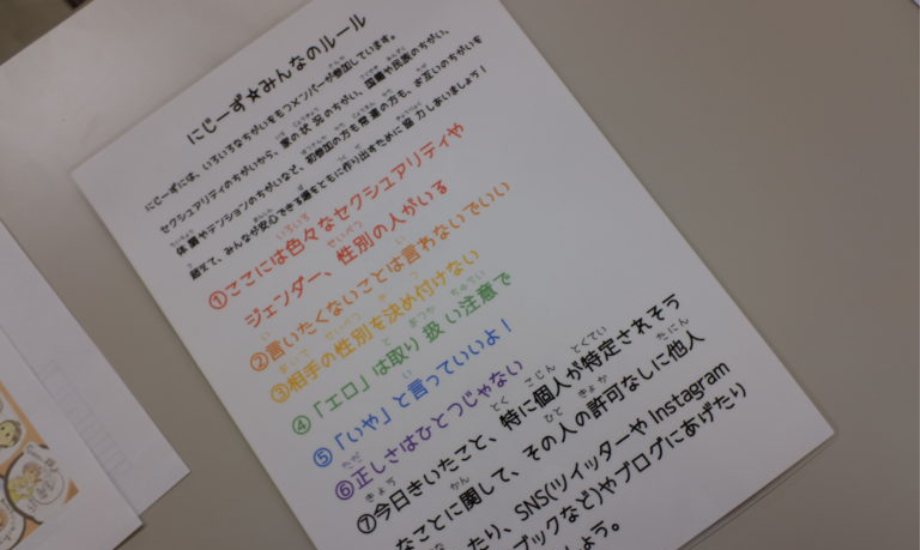 にじーず☆みんなのルール
にじーずには、いろいろなちがいをもつメンバーが参加しています。
セクシュアリティのちがいから、家の状況のちがい、国籍や民族のちがい、
体調やテンションのちがいなど。初参加の方も常連の方も、お互いのちがいを
超えて、みんなが安心できる場をともに作り出すために協力しあいましょう！
①ここには色々なセクシュアリティや
ジェンダー、性別の人がいる
②言いたくないことは言わないでいい
③相手の性別を決め付けない
④「エロ」は取り扱い注意で
⑤「いや」と言っていいよ！
⑥正しさはひとつじゃない
⑦今日きいたこと、特に個人が特定されそう
なことに関して、その人の許可なしに他人
たり、SNS(ツイッターや Instagram
ブックなど)やブログにあげたり
しょう。